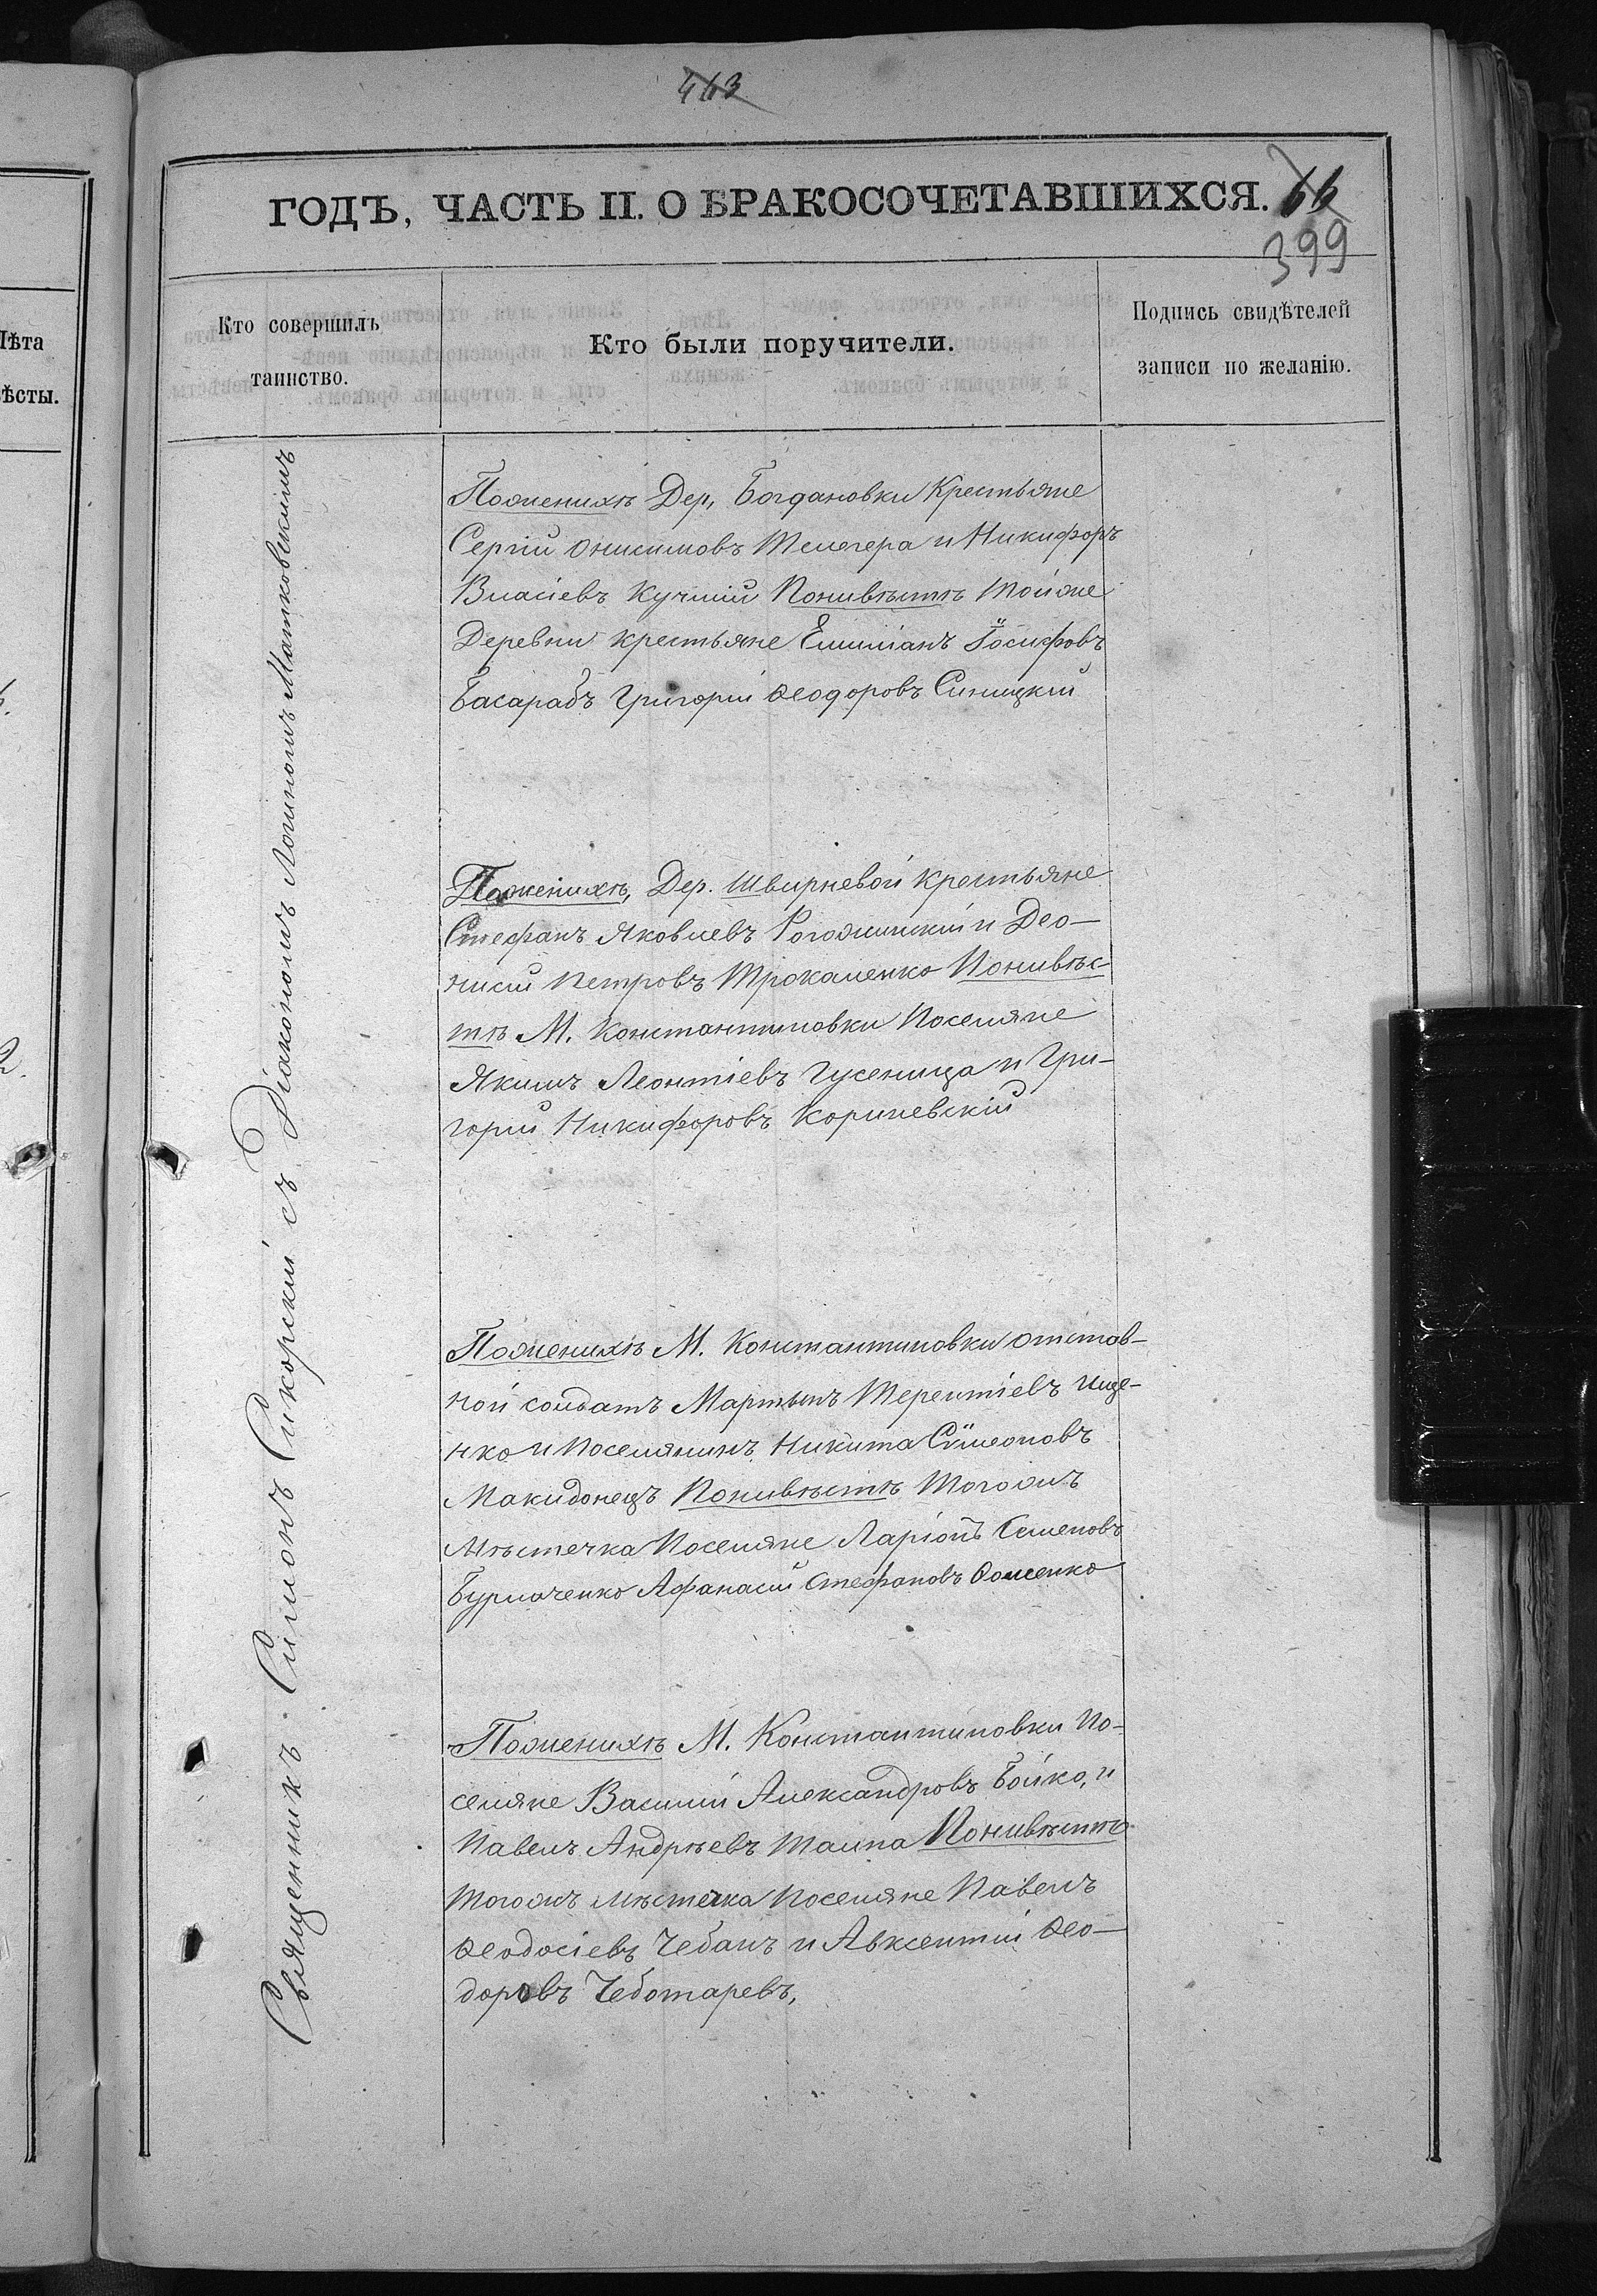 463
ГОДЪ, ЧАСТЬ II. О БРАКОСОЧЕТАВШИХСЯ.
66
399
Лѣта
ѣсты.
Кто совершилъ
таинство.
Кто были поручители.
Подпись свидѣтелей
записи по желанію.
Священникъ Симонъ Сикорскій съ Діакономъ Логиномъ Матковскимъ
Поженихѣ Дер. Богдановки Крестьяне
Сергій Онисимовъ Телегера и Никифоръ
Власіевъ Кучмій Поневѣстѣ Тойже
Деревни крестьяне Емиліанъ Іосифовъ
Басарабъ Григорій Ѳеодоровъ Синицкій
Поженихѣ, Дер. Швирневой крестьяне
Стефанъ Яковлевъ и Део-
нисій Петровъ Трокаленко Поневѣс-
тѣ М. Константиновки Поселяне
Якимъ Леонтіевъ Гусеница и Гри-
горій Никифоровъ Кориневскій
Поженихѣ М. Константиновки отстав-
ной солдатъ Мартынъ Терентіевъ Ище-
нко и Поселянинъ Никита Сѷмеоновъ
Макидонецъ Поневѣстѣ Тогожъ
Мѣстечка Поселяне Ларіонъ Семеновъ
Бурлаченко Афанасій Стефановъ Ѳоменко
Поженихѣ М. Константиновки По-
селяне Василій Александровъ Бойко, и
Павелъ Андрѣевъ Таипа Поневѣстѣ
Тогожъ Мѣстечка Поселяне Павелъ
Ѳеодосіевъ Чебанъ и Авксентій Ѳео-
доровъ Чеботаревъ,